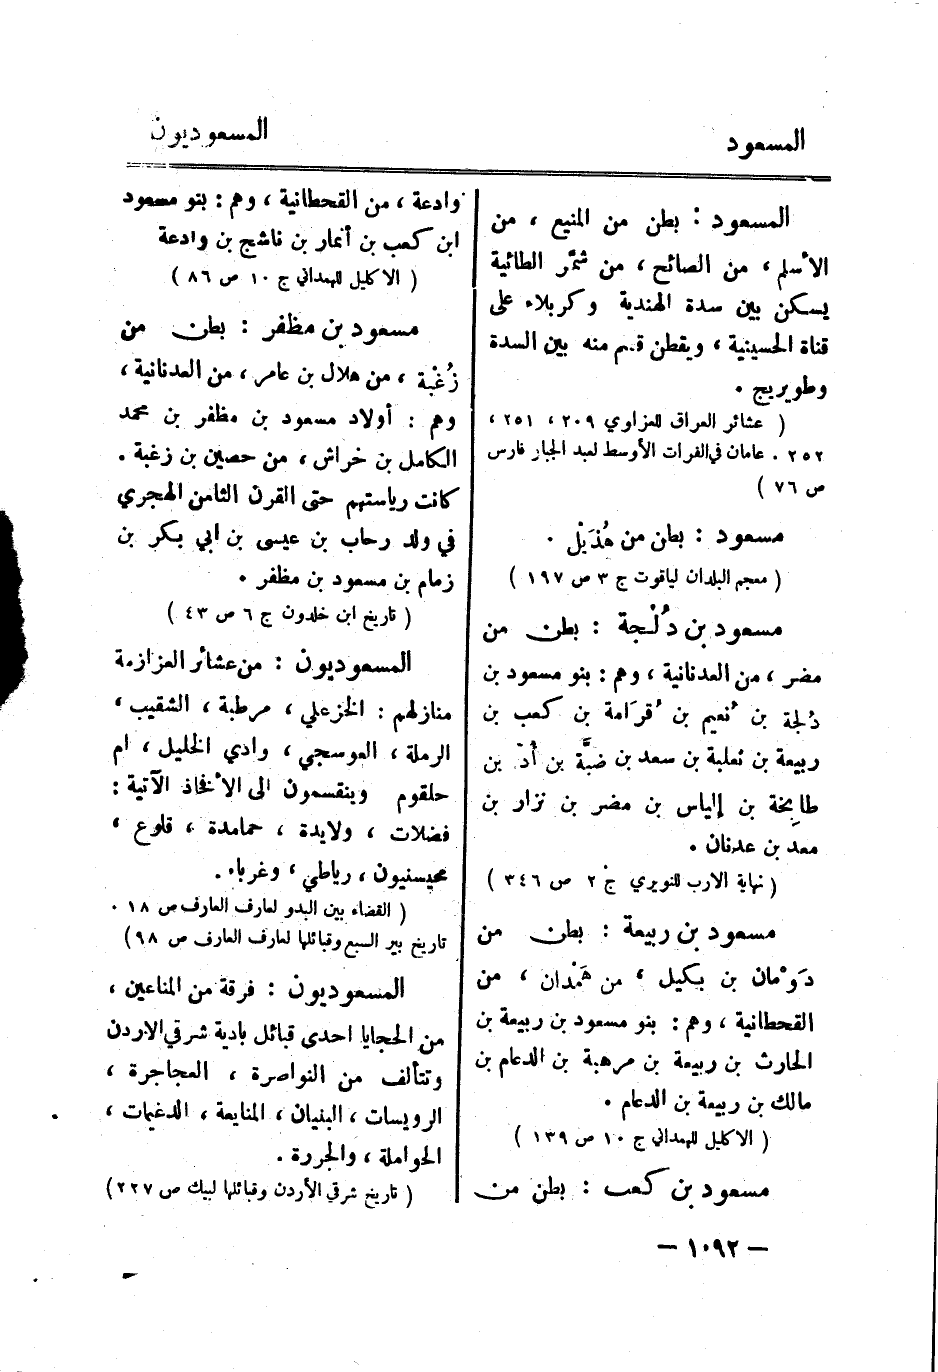 المسعود
المسعوديون
المسعود : بطن من المنيع ، من
الأسلم ، من الصائح ، من شمّر الطائية
يسكن بين سدة الهندية وكربلاء على
قناة الحسينية ، ويقطن قسم منه بين السدة
وطويريج .
( عشائر العراق للعزاوي ٢٠٩ ، ٢٥١ ،
٢٥٢ . عامان في الفرات الأوسط لعبد الجبار فارس
ص ٧٦ )
مسعود : بطن من هُذَيْل .
( معجم البلدان لياقوت ج ٣ ص ١٩٧ )
مسعود بن دُلْجة : بطن من
مضر ، من العدنانية ، وهم : بنو مسعود بن
دُلجة بن نُعيم بن قُرَامة بن كعب بن
ربيعة بن ثعلبة بن سعد بن ضبَّة بن أدّ بن
طابِخة بن إلياس بن مضر بن نزار بن
معد بن عدنان .
( نهاية الارب للنويري ج ٢ ص ٣٤٦ )
مسعود بن ربيعة : بطن من
دَوْمان بن بكيل ، من هَمْدان ، من
القحطانية ، وهم : بنو مسعود بن ربيعة بن
الحارث بن ربيعة بن مرهبة بن الدعام بن
مالك بن ربيعة بن الدعام .
( الاكليل للهمداني ج ١٠ ص ١٣٩ )
مسعود بن كعب : بطن من
وادعة ، من القحطانية ، وهم : بنو مسعود
ابن كعب بن أنمار بن ناشج بن وادعة
( الاكليل للهمداني ج ١٠ ص ٨٦ )
مسعود بن مظفر : بطن من
زُغْبة ، من هلال بن عامر ، من العدنانية ،
وهم : أولاد مسعود بن مظفر بن محمد
الكامل بن خراش ، من حصين بن زغبة .
كانت رياستهم حتى القرن الثامن الهجري
في ولد رحاب بن عيسى بن ابي بكر بن
زمام بن مسعود بن مظفر .
( تاريخ ابن خلدون ج ٦ ص ٤٣ )
المسعوديون : من عشائر العزازمة
منازلهم : الخزعلي ، مرطبة ، الشقيب ،
الرملة ، العوسجي ، وادي الخليل ، ام
حلقوم وينقسمون الى الأفخاذ الآتية :
فضلات ، ولايدة ، حمامدة ، قلوع ،
محيسنيون ، رياطي ، وغرباء .
( القضاء بين البدو لعارف العارف ص ١٨ .
تاريخ بير السبع وقبائلها لعارف العارف ص ٩٨ )
المسعوديون : فرقة من المناعين ،
من الحجايا احدى قبائل بادية شرقي الاردن
وتتألف من النواصرة ، العجاجرة ،
الرويسات ، البنيان ، المنايعة ، الدغيمات ،
الحواملة ، والجررة .
( تاريخ شرقي الأردن وقبائلها لبيك ص ٢٢٧ )
— ١٠٩٢ —